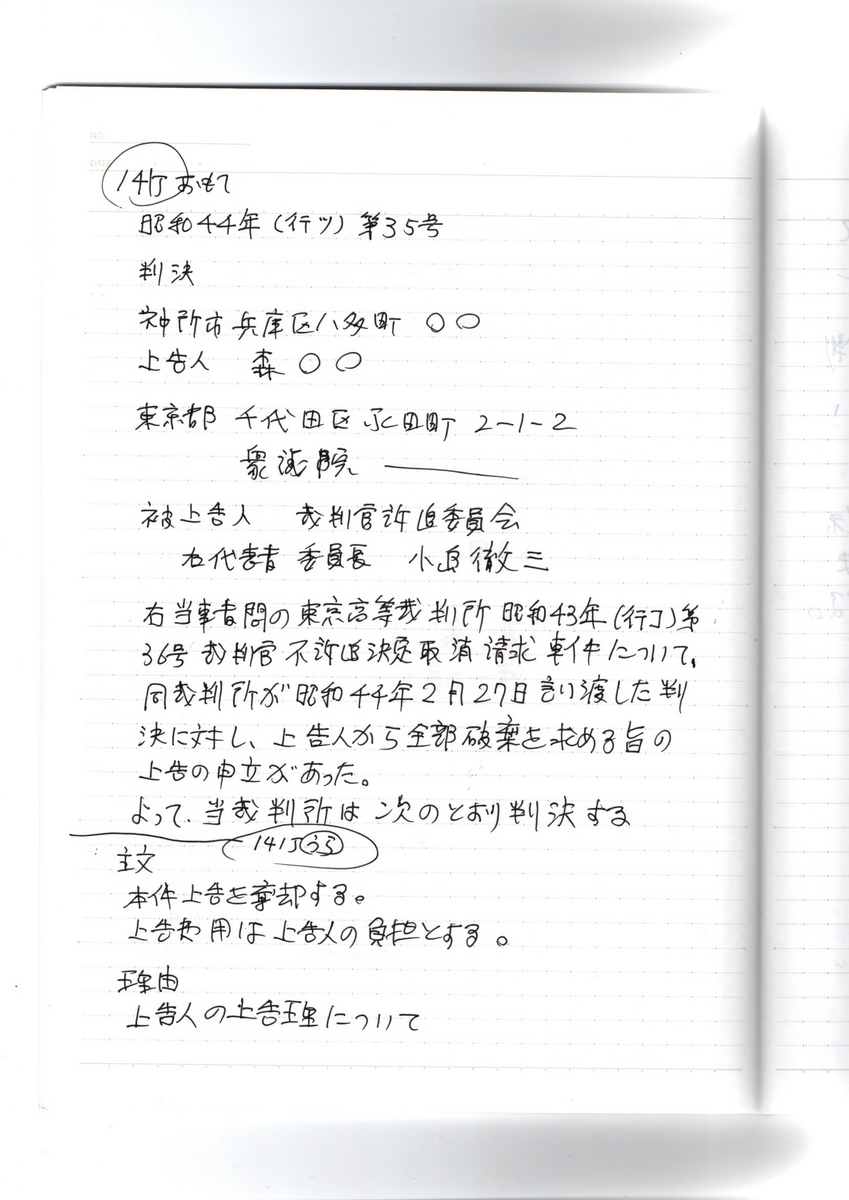 NO.
DATE
14丁おもて
昭和44年(行ツ)第35号
判決
神戸市兵庫区八多町 〇〇
上告人 森〇〇
東京都 千代田区永田町 2-1-2
衆議院
被上告人 裁判官訴追委員会
右代表者 委員長 小島徹三
右当事者間の東京高等裁判所 昭和43年(行コ)第
36号裁判官不訴追決定取消請求事件について、
同裁判所が昭和44年2月27日言い渡した判
決に対し、上告人から全部破棄を求める旨の
上告の申立があった。
よって、当裁判所は次のとおり判決する
14丁うら
主文
本件上告を棄却する。
上告費用は上告人の負担とする。
理由
上告人の上告理由について